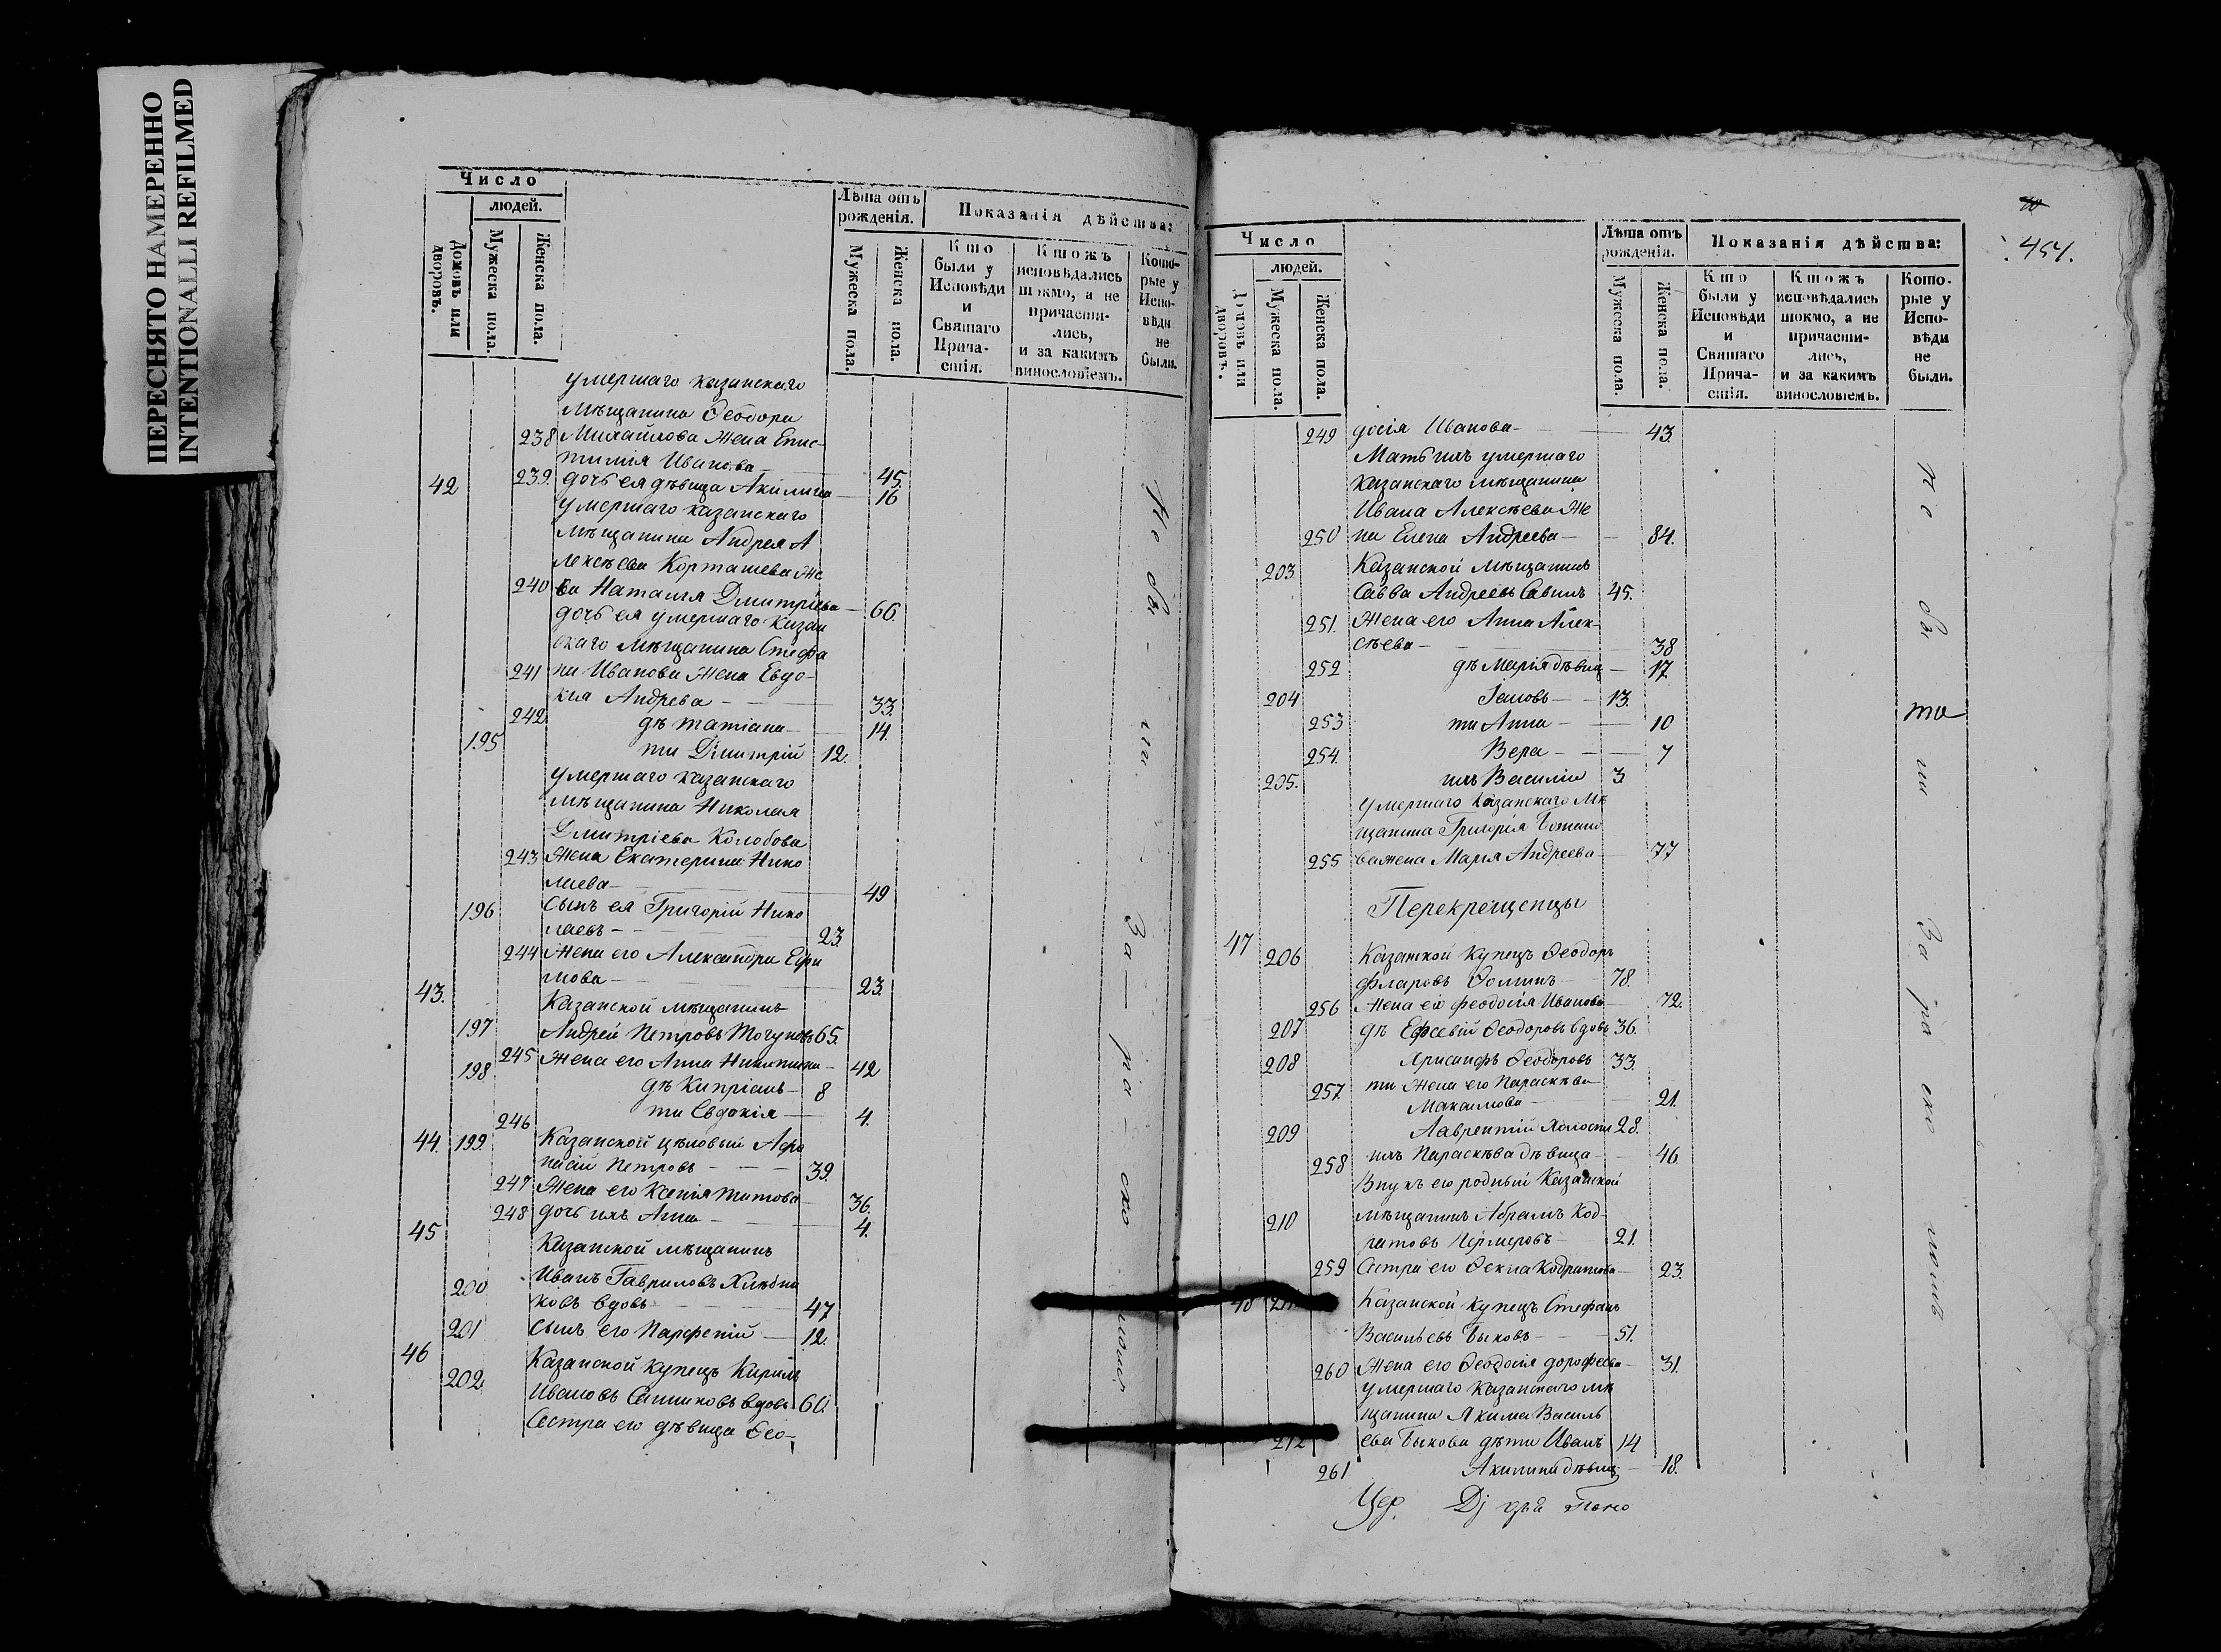 ПЕРЕСНЯТО НАМЕРЕННО
INTENTIONALLI REFILMED
Число
людей.
Домовъ или дворовъ.
Мужеска пола.
Женска пола.
Лѣта отъ рожденія.
Мужеска пола.
Женска пола.
Показанія дѣйства:
Кто были у Исповѣди и Святаго Причастія.
Ктожъ исповѣдались токмо, а не причастились, и за какимъ винословіемъ.
Которые у Исповѣди не были.
умершаго казанскаго
мѣщанина Ѳеодора
238 Михайлова жена Епис-
тимія Иванова 45.
239. дочь ея дѣвица Акилина 16
42
умершаго казанскаго
мѣщанина Андрея А
лексѣева Корташева же
240 на Наталія Дмитріева 66.
дочь ея умершаго казан
скаго мѣщанина Стефа
241 на Иванова жена Евдо-
кія Андрева 33.
242 дѣ Татіана 14.
195 ти Дмитрій 12.
умершаго казанскаго
мѣщанина Николая
Дмитріева Колобова
243 жена Екатерина Нико
лаева 49
196 Сынъ ея Григорій Нико
лаевъ 23.
244 жена его Александра Ефи
мова 23.
43.
Казанской мѣщанинъ
197 Андрей Петровъ 65.
245 жена его Анна 42
198 дѣ Кипріанъ 8
246 ти Евдокія 4.
44. 199. Казанской цѣховый Афа
насій Петровъ 39.
247 жена его Ксенія Титова 36.
248 дочь ихъ Анна 4.
45
Казанской мѣщанинъ
200 Иванъ Гавриловъ Хлѣбни
ковъ вдовъ 47
201 сынъ его Парфеній 12.
46
Казанской купецъ Кирилъ
202 Ивановъ вдовъ 60.
Сестра его дѣвица Ѳео-
Не бы- ли. За ра- ско ломъ
454.
Число
людей.
Домовъ или дворовъ.
Мужеска пола.
Женска пола.
Лѣта отъ рожденія.
Мужеска пола.
Женска пола.
Показанія дѣйства:
Кто были у Исповѣди и Святаго Причастія.
Ктожъ исповѣдались токмо, а не причастились, и за какимъ винословіемъ.
Которые у Исповѣди не были.
249 досія Иванова 43.
Мать ихъ умершаго
казанскаго мѣщанина
Ивана Алексѣева же
250 на Елена Андреева 84.
203 Казанской мѣщанинъ
Савва Андреевъ Савинъ 45.
251. жена его Анна Алек-
сѣева 38
252 дѣ Марія дѣвиц 17.
204 Іаковъ 13.
253 ти Анна 10
254. Вера 7
205. ихъ Василій 3
умершаго казанскаго мѣ
щанина Григорія
255 ва жена Марія Андреева 77
Перекрещенцы
47
206 Казанской купецъ Ѳеодоръ
Фларовъ Ѳоминъ 78.
256 жена его Феодосія Иванова 72.
207 дѣ Евсевій Ѳеодоровъ вдовъ 36.
208 Хрисанфъ Ѳеодоровъ 33.
257. ти жена его Параскѣва
Максимова 21.
209 Лаврентій холостъ 28.
258 ихъ Параскѣва дѣвица 46.
Внукъ его родный Казанской
210 мѣщанинъ Абрамъ Код-
ратовъ 21.
259 Сестра его Ѳекла Кодратова 23.
48 211 Казанской купецъ Стефанъ
Васильевъ Быковъ 51.
260 жена его Ѳеодосія Дорофеева 31.
умершаго казанскаго мѣ
щанина Якима Василь
212 ева Быкова дѣти Иванъ 14
261 Акилина дѣвиц 18.
Не бы ли За ра ско ломъ